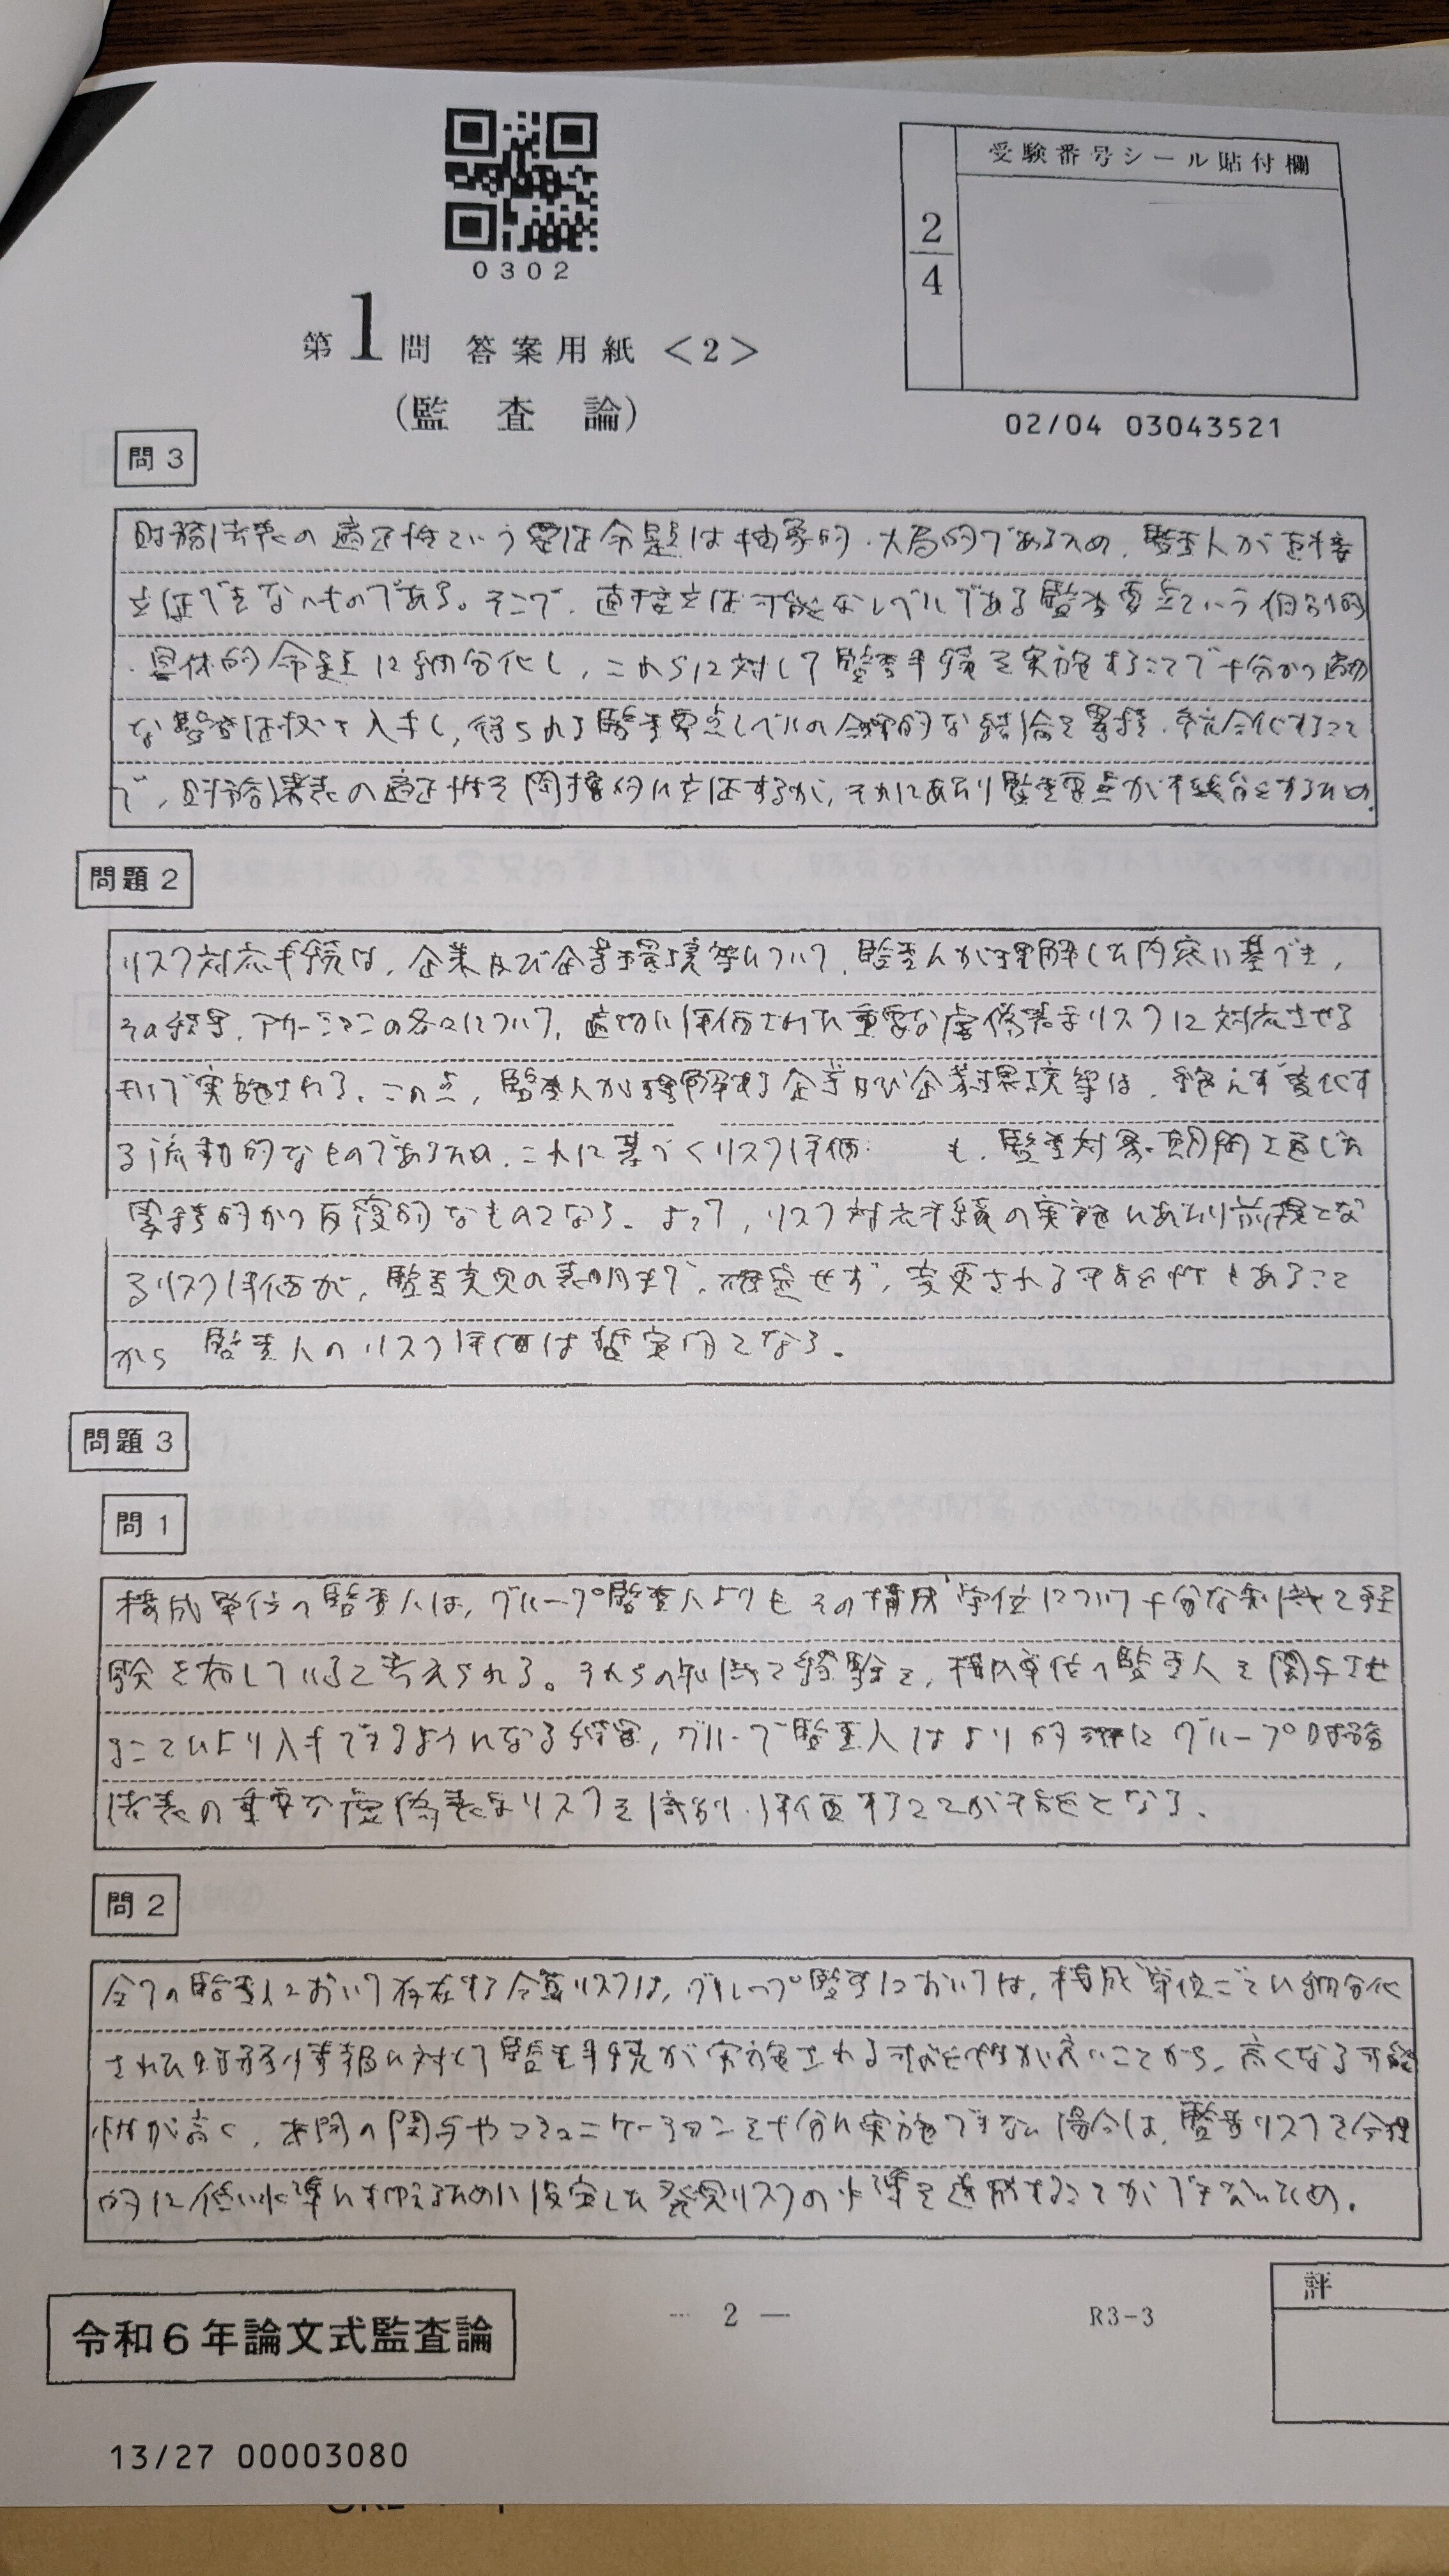 0302
受験番号シール貼付欄
2
4
第1問 答案用紙 <2>
(監査論)
02/04 03043521
問 3
財務諸表の適正性という要証命題は抽象的・大局的であるため、監査人が直接
立証できないものである。そこで、直接立証可能なレベルである監査要点という個別的
・具体的命題に細分化し、これらに対して監査手続を実施することで十分かつ適切
な監査証拠を入手し、得られる監査要点レベルの合理的な結論を累積・統合化すること
で、財務諸表の適正性を間接的に立証するが、それにあたり監査要点が必要をするため。
問題 2
リスク対応手続は、企業及び企業環境等について、監査人が理解した内容に基づき、
その結果、アサーションの各々について、適切に評価された重要な虚偽表示リスクに対応させる
形で実施される。この点、監査人が理解する企業及び企業環境等は、絶えず変化す
る流動的なものであるため、これに基づくリスク評価 も、監査対象期間を通じた
累積的かつ反復的なものとなる。よって、リスク対応手続の実施にあたり前提とな
るリスク評価が、監査意見の表明まで、確定せず、変更される可能性もあること
から 監査人のリスク評価は暫定的となる。
問題 3
問 1
構成単位の監査人は、グループ監査人よりもその構成単位について十分な知識と経
験を有していると考えられる。それらの知識と経験を、構成単位の監査人を関与させ
ることにより入手できるようになる結果、グループ監査人はより的確にグループ財務
諸表の重要な虚偽表示リスクを識別・評価することが可能となる。
問 2
全ての監査において存在する合算リスクは、グループ監査においては、構成単位ごとに細分化
された財務情報に対して監査手続が実施される可能性が高いことから、高くなる可能
性が高く、本問の関与やコミュニケーションを十分に実施できない場合は、監査リスクを合理
的に低い水準に抑えるために設定した発見リスクの水準を達成することができないため。
評
令和6年論文式監査論
— 2 —
R3-3
13/27 00003080